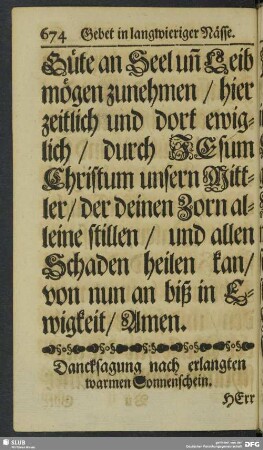 674 Gebet in langwieriger Nässe.
Güte an Seel uñ Leib
mögen zunehmen / hier
zeitlich und dort ewig-
lich / durch JEsum
Christum unsern Mitt-
ler / der deinen Zorn al-
leine stillen / und allen
Schaden heilen kan /
von nun an biß in E-
wigkeit / Amen.
Dancksagung nach erlangten
warmen Sonnenschein.
HErr
SLUB